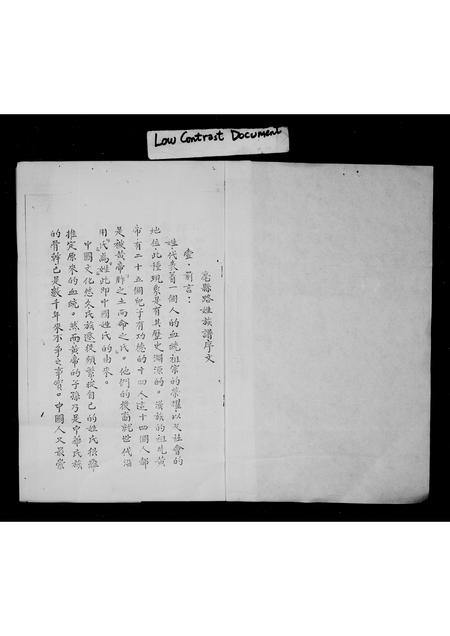 Low Contrast Document
亳縣路姓族譜序文
壹.前言：
姓.代表着一個人的血統祖宗的榮耀以及社會的
地位.此種現象是有其歷史淵源的。漢族的祖先黃
帝有二十五個兒子有功德的十四人這十四個人都
是被黃帝胙之土而命之氏。他們的後裔就世代沿
用氏為姓此即中國姓氏的由來。
中國文化悠久民族遷徙頻繁從自己的姓氏很難
推定原來的血統。然而黃帝的子孫乃是中華民族
的骨幹已是數千年來不爭之事實。中國人又最崇